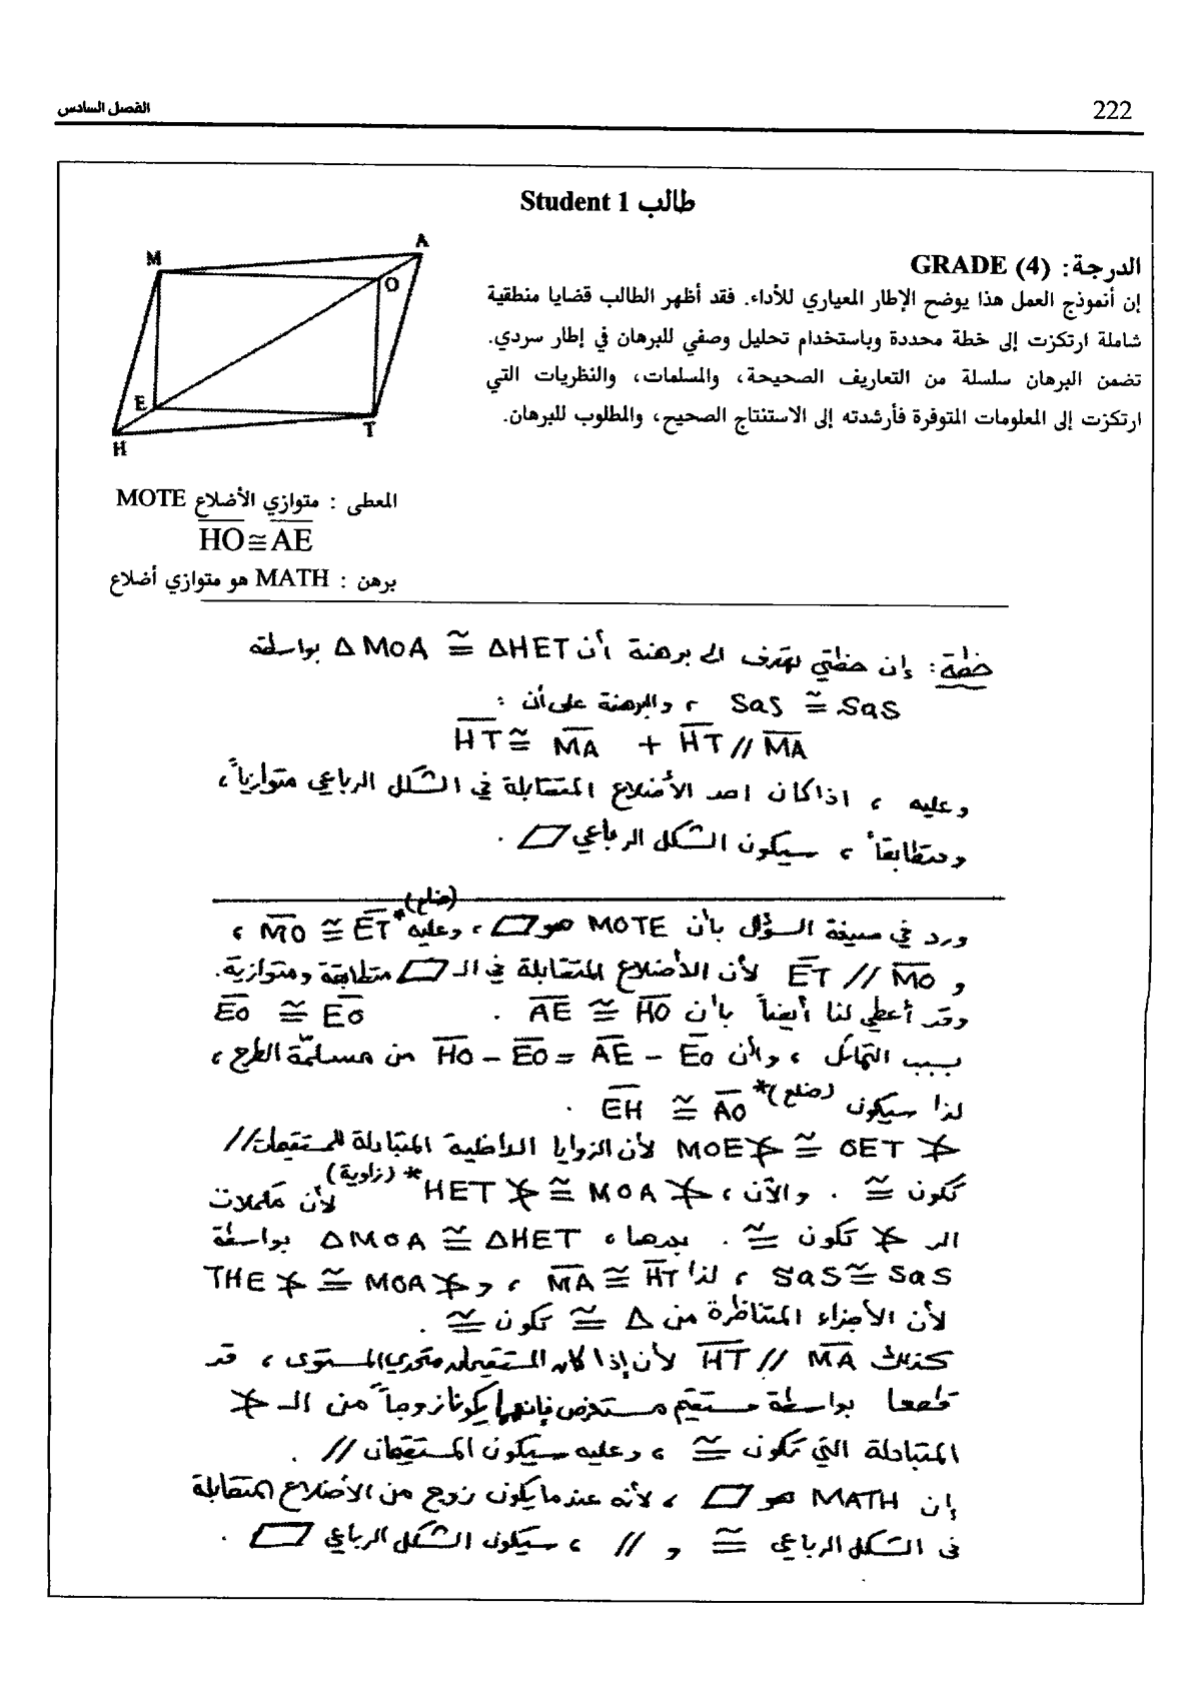 الفصل السادس
222
طالب Student 1
M
A
O
E
T
H
الدرجة: GRADE (4)
إن أنموذج العمل هذا يوضح الإطار المعياري للأداء. فقد أظهر الطالب قضايا منطقية
شاملة ارتكزت إلى خطة محددة وباستخدام تحليل وصفي للبرهان في إطار سردي.
تضمن البرهان سلسلة من التعاريف الصحيحة، والمسلمات، والنظريات التي
ارتكزت إلى المعلومات المتوفرة فأرشدته إلى الاستنتاج الصحيح، والمطلوب للبرهان.
المعطى : متوازي الأضلاع MOTE
HO ≅ AE
برهن : MATH هو متوازي أضلاع
خطة: إن خطتي تهدف الى برهنة أن △MOA ≅ △HET بواسطة
SaS ≅ SaS ، والبرهنة على أن :
HT ≅ MA + HT // MA
وعليه ، اذا كان احد الأضلاع المتقابلة في الشكل الرباعي متوازياً،
ومتطابقاً ، سيكون الشكل الرباعي ▱ .
ورد في صيغة السؤال بأن MOTE هو ▱ ، وعليه MO ≅ ET* (ضلع) ،
و ET // MO لأن الأضلاع المتقابلة في الـ ▱ متطابقة ومتوازية.
وقد أعطي لنا أيضاً بأن AE ≅ HO . EO ≅ EO
بسبب التماثل ، وأن HO – EO = AE – EO من مسلمة الطرح ،
لذا سيكون EH ≅ AO* (ضلع) .
∢ MOE ≅ ∢ OET لأن الزوايا الداخلية المتبادلة للمستقيمات //
تكون ≅ . والآن ، ∢ HET ≅ ∢ MOA* (زاوية) لأن مكملات
الـ ∢ تكون ≅ . بعدها ، △MOA ≅ △HET بواسطة
SaS ≅ SaS ، لذا MA ≅ HT ، و ∢ THE ≅ ∢ MOA
لأن الأجزاء المتناظرة من △ ≅ تكون ≅ .
كذلك HT // MA لأن إذا كان المستقيمان متحدي المستوى ، قد
قطعا بواسطة مستقيم مستعرض فإنهما يكونا زوجاً من الـ ∢
المتبادلة التي تكون ≅ ، وعليه سيكون المستقيمان // .
إن MATH هو ▱ ، لأنه عندما يكون زوج من الأضلاع المتقابلة
في الشكل الرباعي ≅ و // ، سيكون الشكل الرباعي ▱ .